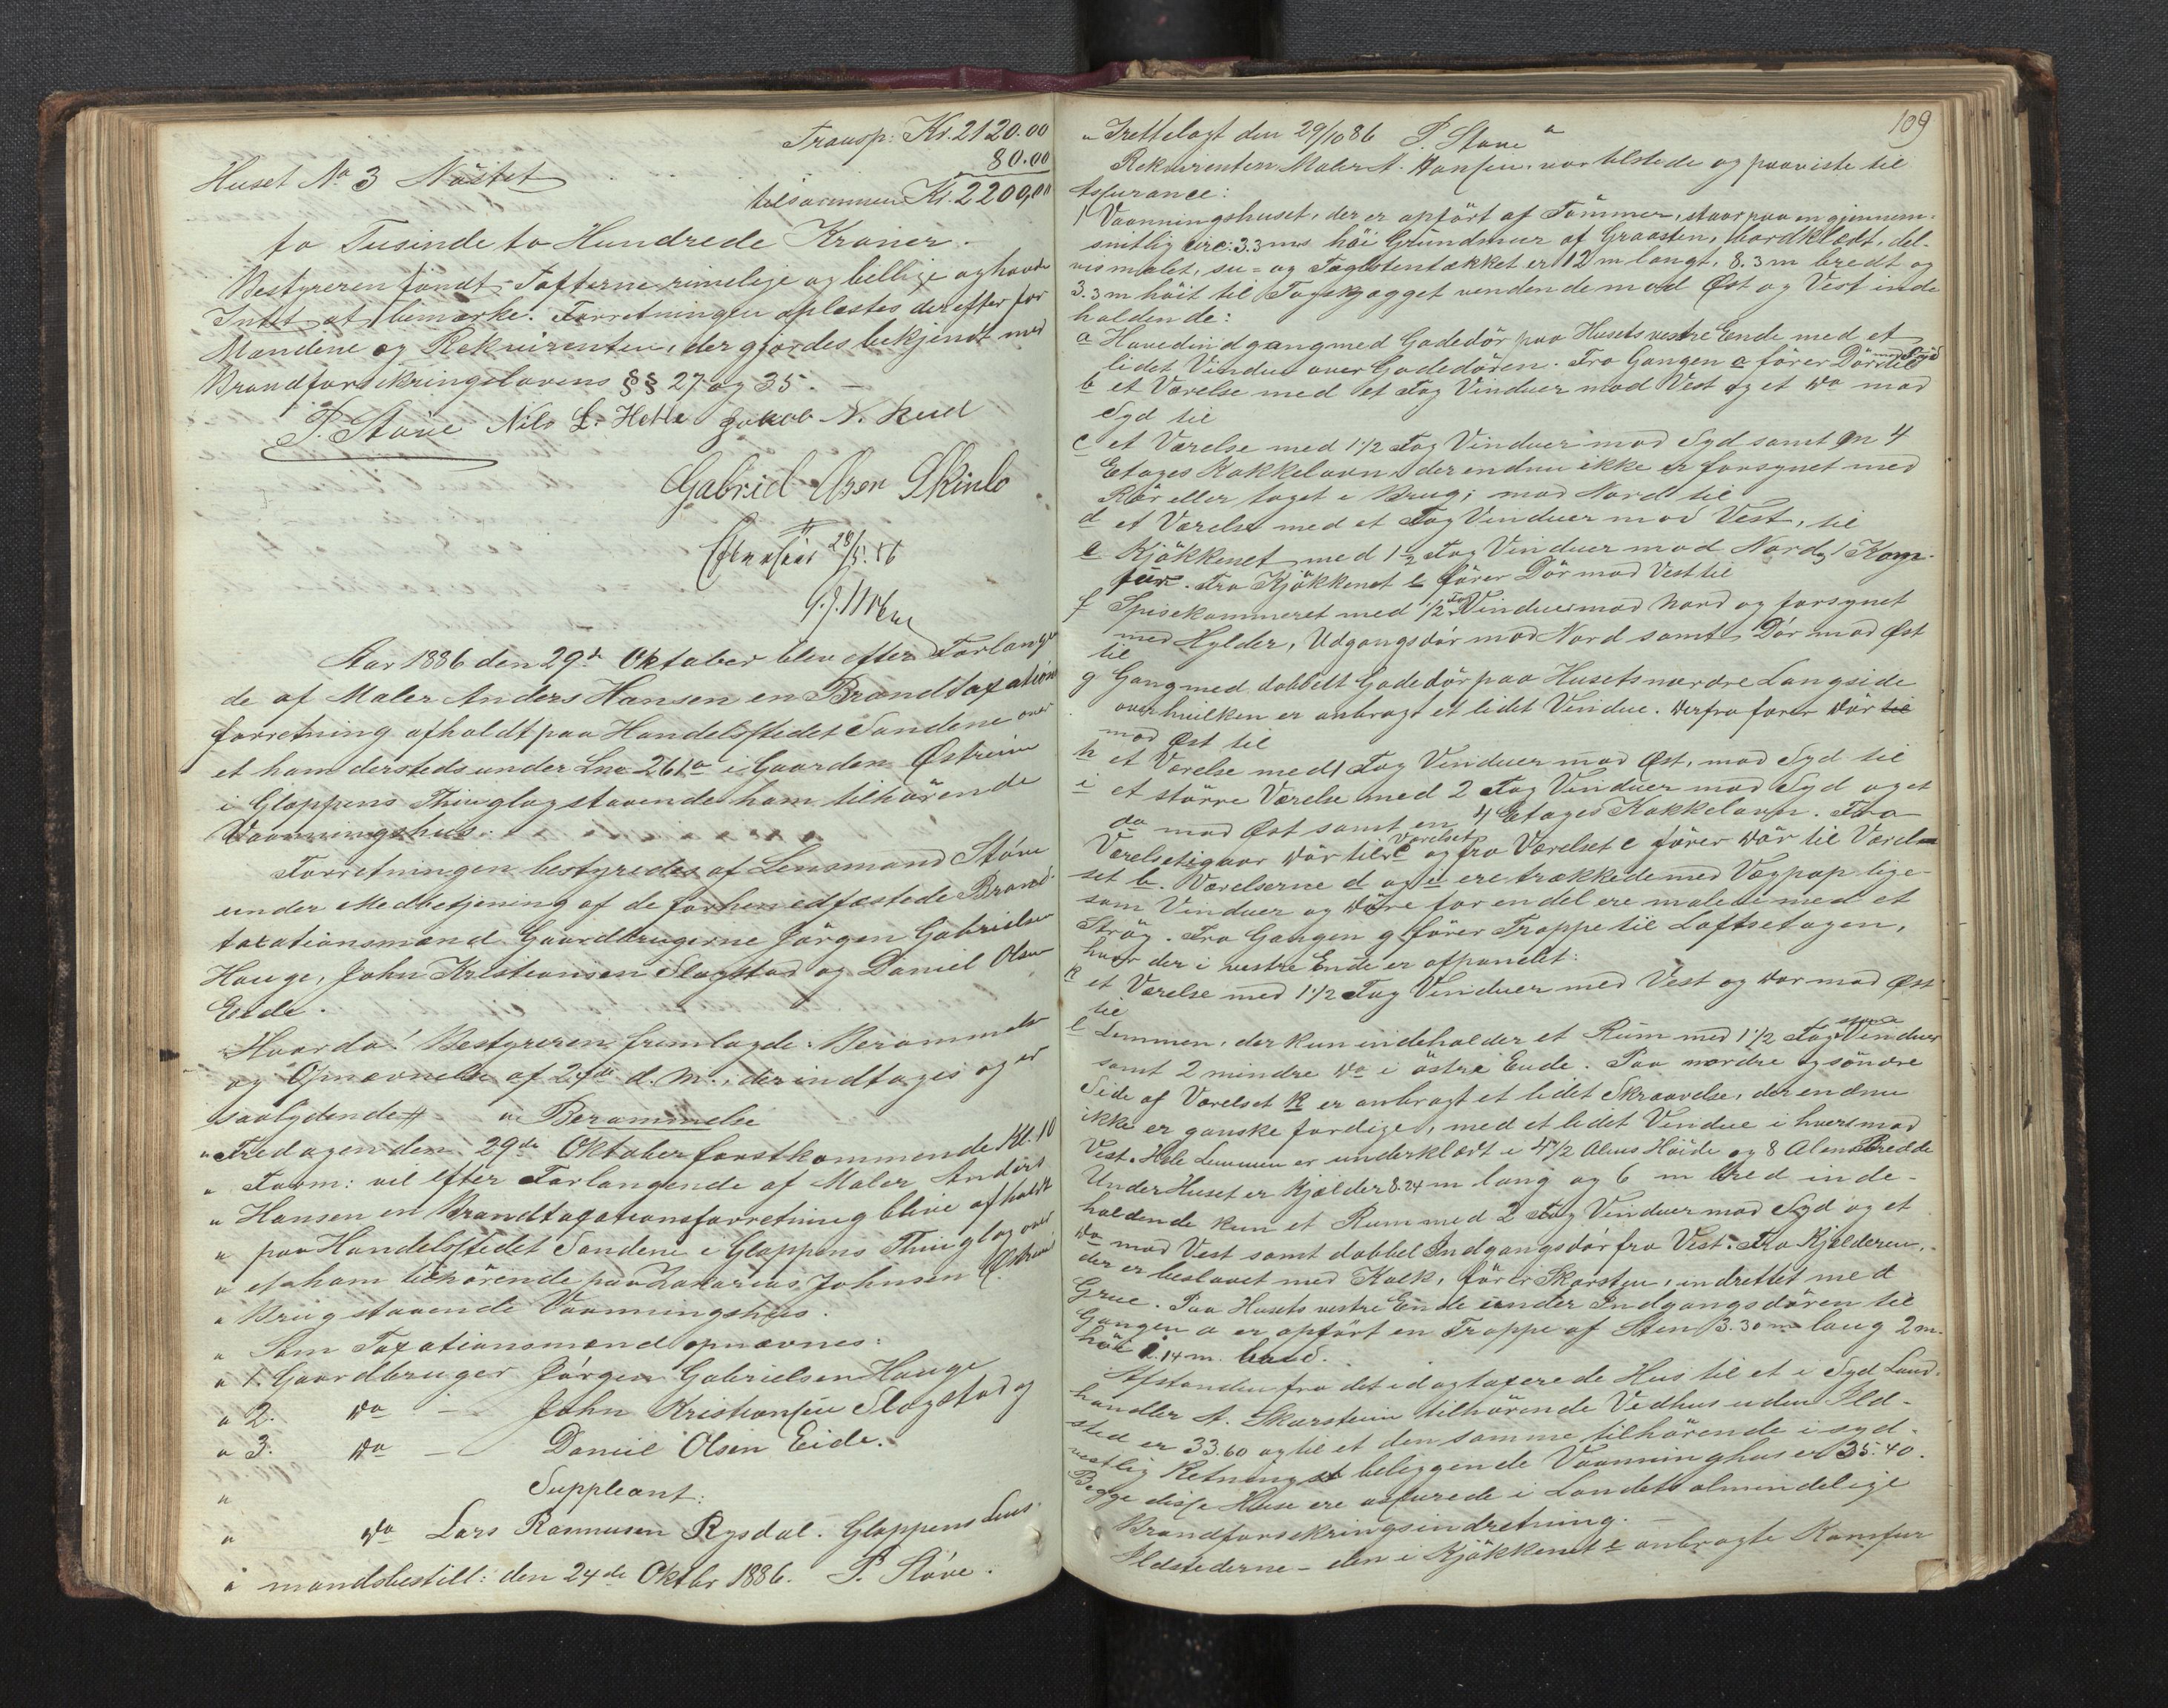 Transp: Kr. 2120.00
Huset No 3 Nöstet 80.00
tilsammen Kr. 2200,00
to Tusinde to Hundrede Kroner.
Bestyreren fandt Taxterne rimelige og billige og havde
Intet at bemærke. Forretningen oplæstes derefter for
Mændene og Rekvirenten, der gjordes bekjendt med
Brandforsikringslovens §§ 27 og 35. —
P. Støve Nils L. Hetle Jakob N. Reed
Gabriel Olsen Skinlo
28/5. 86
Aar 1886 den 29de Oktober blev efter Forlangen
de af Maler Anders Hansen en Brandtaxations
forretning afholdt paa Handelsstedet Sandene over
et ham dersteds under Lno 261a i Gaarden Østreim
i Gloppens Thinglag staaende ham tilhörende
Vaaningshus.
Forretningen bestyredes af Lensmand Støve
under Medbetjening af de forhen edfæstede Brand-
taxationsmænd Gaardbrugerne Jörgen Gabrielsen
Hauge, John Kristiansen Slagstad og Daniel Olsen
Eide.
Hvorda! Bestyreren fremlagde: Berammelse
og Opnævnelse af 24de d. M., der indtages og er
saalydende: „Berammelse
„Fredagen den 29de Oktober førstkommende Kl. 10
„ Form: vil efter Forlangende af Maler Anders
„ Hansen en Brandtaxationsforretning blive afholdt
„ paa Handelsstedet Sandene i Gloppens Thinglag over
„ et ham tilhörende paa Zakarias Johnsen Østreim
„ Brug staaende Vaaningshus.
„ Som Taxationsmænd opnævnes:
„ 1. Gaardbruger Jörgen Gabrielsen Hauge
„ 2. Do — John Kristiansen Slagstad og
„ 3. Do — Daniel Olsen Eide.
„ Suppleant:
„ Do Lars Rasmusen Rysdal. Gloppens Lens-
„ mandsbestill: den 24de Oktbr 1886. P. Støve.
109
„ Fretlelagt den 29/10 86 P. Støve "
Rekvirenten Maler A. Hansen var tilstede og paaviste til
Assurance:
1 Vaaningshuset, der er opfört af Tömmer, staar paa en gjennem-
snitlig circ: 3.3 m höi Grundmur af Graasten, bordklædt, del-
vis malet, su- og Taglstentækket er 12 m langt, 8.3 m bredt og
3.3 m höit til Tagskjægget vendende mod Øst og Vest inde
holdende:
a Hovedindgang med Gadedör paa Husets vestre Ende med et
lidet Vindue over Gadedören. Fra Gangen a förer Dör mod Syd til
b et Værelse med et Fag Vinduer mod Vest og et Do mod
Syd til
c et Værelse med 1 1/2 Fag Vinduer mod Syd samt en 4
Etages Kakkelovn der endnu ikke er forsynet med
Rör eller taget i Brug; mod Nord til
d et Værelse med et Fag Vinduer mod Vest, til
e Kjökkenet med 1 1/2 Fag Vinduer mod Nord og 1 Kom-
für. Fra Kjökkenet e förer Dör mod Vest til
f Spisekammeret med 1/2 Fag Vinduer mod Nord og forsynet
med Hylder, Udgangsdör mod Nord samt Dör mod Øst
til
g Gang med dobbelt Gadedör paa Husets nordre Langside
over hvilken er anbragt et lidet Vindue. Derfra förer Dör til
mod Øst til
h et Værelse med 1 Fag Vinduer mod Øst, mod Syd til
i et större Værelse med 2 Fag Vinduer mod Syd og et
do mod Øst samt en 4 Etages Kakkelovn. Fra
Værelset i gaar Dör til Værelset c og fra Værelset c förer Dör til Værel-
set b. Værelserne d og i ere trækkede med Vægpap lige-
som Vinduer og Döre for en del ere malede med et
Strög. Fra Gangen g förer Trappe til Loftsetagen,
hvor der i vestre Ende er afpanelet:
k et Værelse med 1 1/2 Fag Vinduer med Vest og Dör mod Øst
til
l Lemmen, der kun indeholder et Rum med 1 1/2 Fag smaa Vinduer
samt 2 mindre Do i östre Ende. Paa nordre og söndre
Side af Værelset k er anbragt et lidet Skraaværelse, der endnu
ikke er ganske færdige, med et lidet Vindue i hvers mod
Vest. Hele Lemmen er underklædt i 4 1/2 Alens Höide og 8 Alens Bredde
Under Huset er Kjælder 8.24 m lang og 6 m bred inde-
holdende kun et Rum med 2 Fag Vinduer mod Syd og et
Do mod Vest samt dobbel Indgangsdör fra Vest. Fra Kjælderen,
der er beslaaet med Kalk, förer Skorsten, indrettet med
Grue. Paa Husets vestre Ende under Indgangsdören til
Gangen a er opfört en Trappe af Sten 3.30 m lang 2 m.
höi 2.14 m. bred.
Afstanden fra det idag taxerede Hus til et i Syd Land-
handler A. Skarstein tilhörende Vedhus uden Ild-
sted er 33.60 og til et den samme tilhörende i syd-
vestlig Retning beliggende Vaaninghus er 35.40.
Begge disse Huse ere assurede i Landets almindelige
Brandforsikringsindretning. —
Ildstederne - den i Kjökkenet e anbragte Komfur